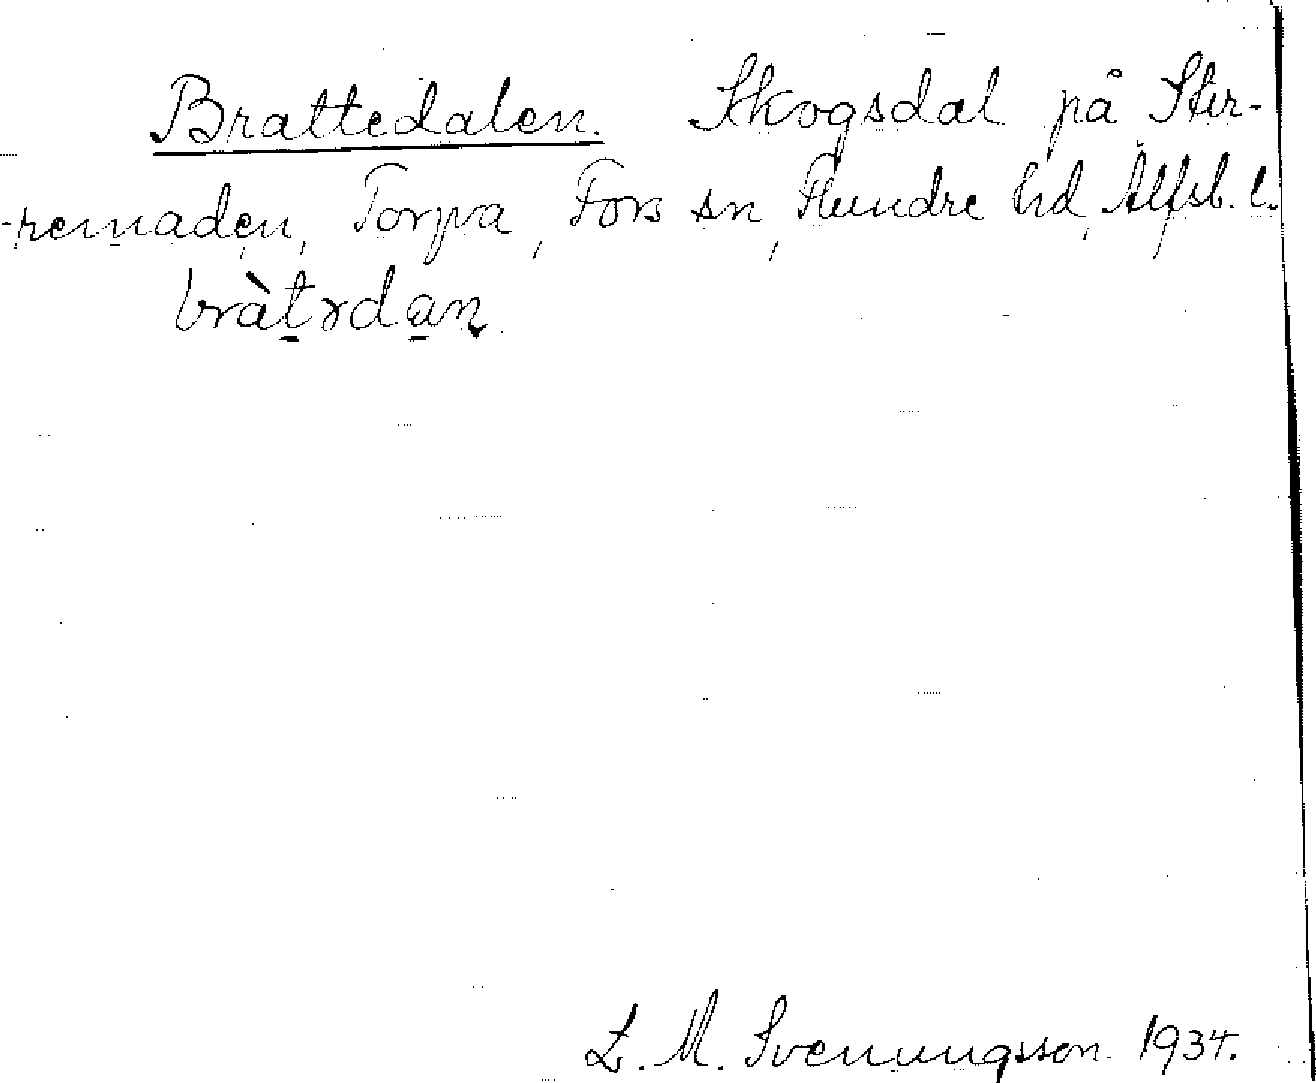 Brattedalen. Skogsdal på Ster-
-remaden, Torpa, Fors sn, Flundre hd, Älfsb. l.
bràtɤdan̥.
L. M. Svenungsson 1934.